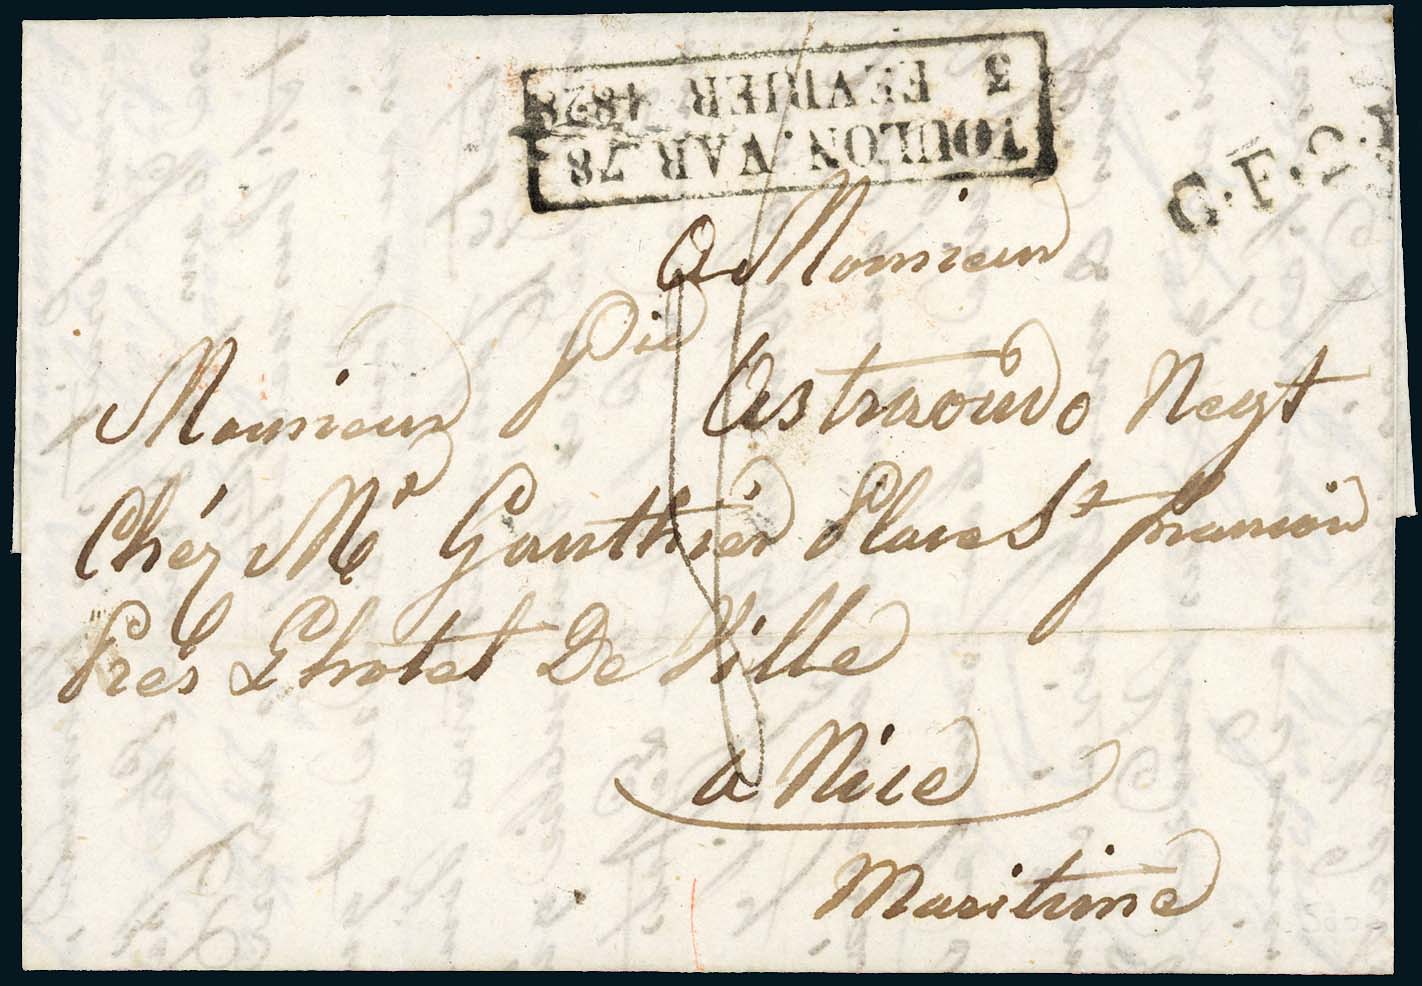 TOULON. VAR 78
3 FEVRIER 1828
C.F.2.R
A Monsieur
Monsieur Pie Astraoudo Negt
Chéz Mr Gauthier Place St francois
Prés Lhotel De Ville
a Nice
Maritime